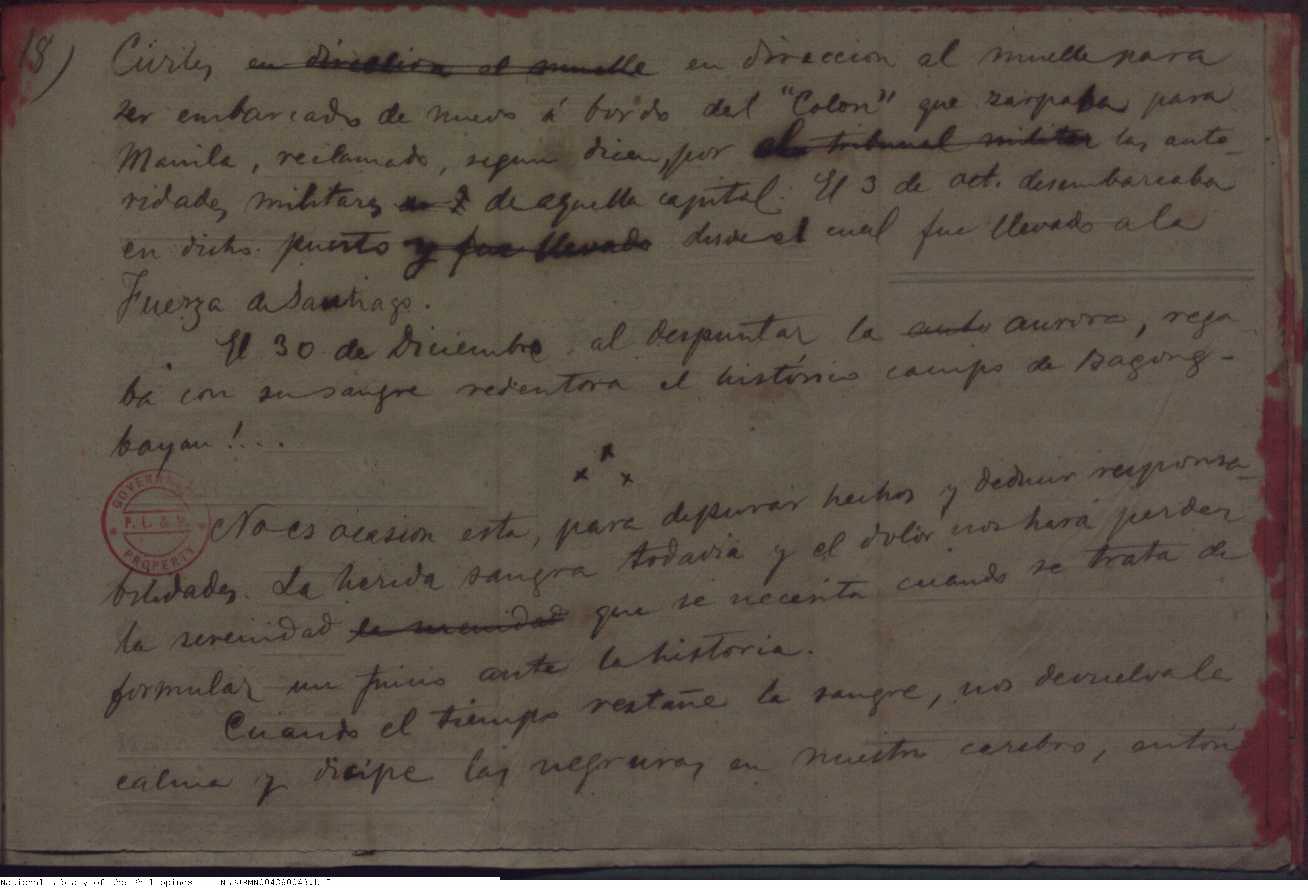 18)
Civiles en direccion al muelle en direccion al muelle para
ser embarcado de nuevo á bordo del "Colon" que zarpaba para
Manila, reclamado, segun dicen, por el tribunal militar las auto-
ridades militares de aquella capital. El 3 de oct. desembarcaba
en dicho puerto y fue llevado desde el cual fue llevado a la
Fuerza de Santiago.
El 30 de Diciembre al despuntar la auro aurora, rega
ba con su sangre redentora el histórico campo de Bagong-
bayan!...
x x x
No es ocasion esta, para depurar hechos y deducir responsa-
bilidades. La herida sangra todavia y el dolor nos hará perder
la serenidad la serenidad que se necesita cuando se trata de
formular un juicio ante la historia.
Cuando el tiempo restañe la sangre, nos devuelva la
calma y disipe las negruras en nuestro cerebro, enton
GOVERNMENT
P. L. & M.
PROPERTY
National Library of the Philippines